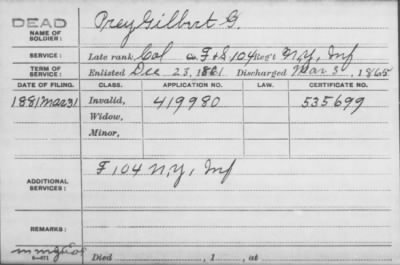 DEAD
NAME OF SOLDIER: Prey Gilbert G.
SERVICE: Late rank, Col Co. F + S 104 Reg't N.Y. Inf
TERM OF SERVICE: Enlisted Dec 23, 1861 Discharged Mar 3, 1865
DATE OF FILING. CLASS. APPLICATION NO. LAW. CERTIFICATE NO.
1881 Mar 31 Invalid, 419980 535699
Widow,
Minor,
ADDITIONAL SERVICES: F 104 N.Y. Inf
REMARKS:
Died , 1 , at